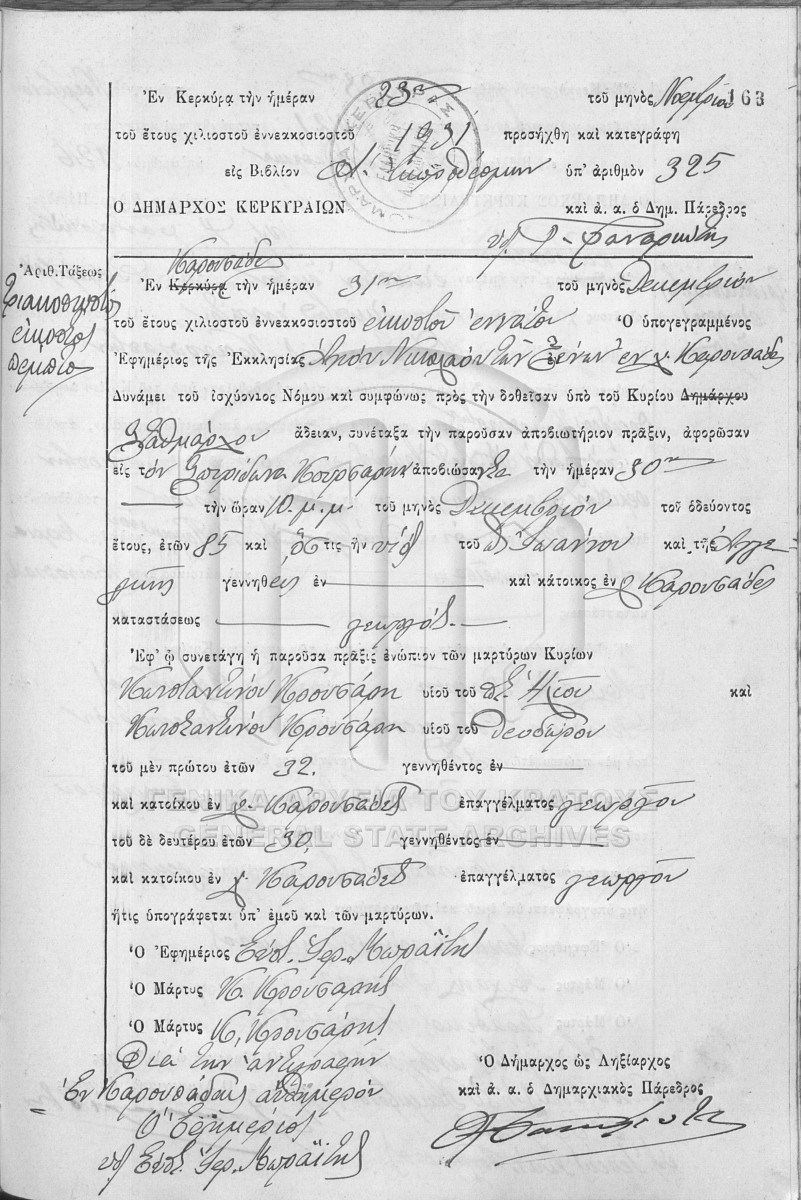 Ἐν Κερκύρᾳ τὴν ἡμέραν 23ην τοῦ μηνὸς Νοεμβρίου 163
τοῦ ἔτους χιλιοστοῦ ἐννεακοσιοστοῦ 1931 προσήχθη καὶ κατεγράφη
εἰς Βιβλίον ὑπ' ἀριθμὸν 325
Ὁ ΔΗΜΑΡΧΟΣ ΚΕΡΚΥΡΑΙΩΝ καὶ ἀ. α. ὁ Δημ. Πάρεδρος
Καρουσάδες
Ἀριθ. Τάξεως
Τριακοσιοστὸν
εἰκοστὸς
πέμπτος
Ἐν Κερκύρᾳ τὴν ἡμέραν 31ην τοῦ μηνὸς Δεκεμβρίου
τοῦ ἔτους χιλιοστοῦ ἐννεακοσιοστοῦ εἰκοστοῦ ἐννάτου Ὁ ὑπογεγραμμένος
Ἐφημέριος τῆς Ἐκκλησίας Ἁγίου Νικολάου τῶν Ξένων ἐν χ. Καρουσάδες
Δυνάμει τοῦ ἰσχύοντος Νόμου καὶ συμφώνως πρὸς τὴν δοθεῖσαν ὑπὸ τοῦ Κυρίου Δημάρχου
Σταθμάρχου ἄδειαν, συνέταξα τὴν παροῦσαν ἀποβιωτήριον πρᾶξιν, ἀφορῶσαν
εἰς τὸν Σπυρίδωνα Κουρσάρην ἀποβιώσαντα τὴν ἡμέραν 30ην
τὴν ὥραν 10 μ.μ. τοῦ μηνὸς Δεκεμβρίου τοῦ ὁδεύοντος
ἔτους, ἐτῶν 85 καὶ ὅστις ἦν υἱὸς τοῦ Ἰωάννου καὶ τῆς Ἀγγε
λικῆς γεννηθεὶς ἐν καὶ κάτοικος ἐν χ. Καρουσάδες
καταστάσεως γεωργὸς
Ἐφ' ᾧ συνετάγη ἡ παροῦσα πρᾶξις ἐνώπιον τῶν μαρτύρων Κυρίων
Κωνσταντίνου Κρουσάρη υἱοῦ τοῦ καὶ
Κωνσταντίνου Κρουσάρη υἱοῦ τοῦ Θεοδώρου
τοῦ μὲν πρώτου ἐτῶν 32. γεννηθέντος ἐν
καὶ κατοίκου ἐν χ. Καρουσάδες ἐπαγγέλματος γεωργοῦ
ΓΕΝΙΚΑ ΑΡΧΕΙΑ ΤΟΥ ΚΡΑΤΟΥΣ
GENERAL STATE ARCHIVES
τοῦ δὲ δευτέρου ἐτῶν 30, γεννηθέντος ἐν
καὶ κατοίκου ἐν χ. Καρουσάδες ἐπαγγέλματος γεωργοῦ
ἥτις ὑπογράφεται ὑπ' ἐμοῦ καὶ τῶν μαρτύρων.
Ὁ Ἐφημέριος Εὐστ. Ἱερ. Μωραΐτης
Ὁ Μάρτυς Κ. Κρουσάρης
Ὁ Μάρτυς Κ. Κρουσάρης
Διὰ τὴν ἀντιγραφὴν
Ἐν Καρουσάδαις αὐθημερὸν
Ὁ Ἐφημέριος
Εὐστ. Ἱερ. Μωραΐτης
Ὁ Δήμαρχος ὡς Ληξίαρχος
καὶ ἀ. α. ὁ Δημαρχιακὸς Πάρεδρος